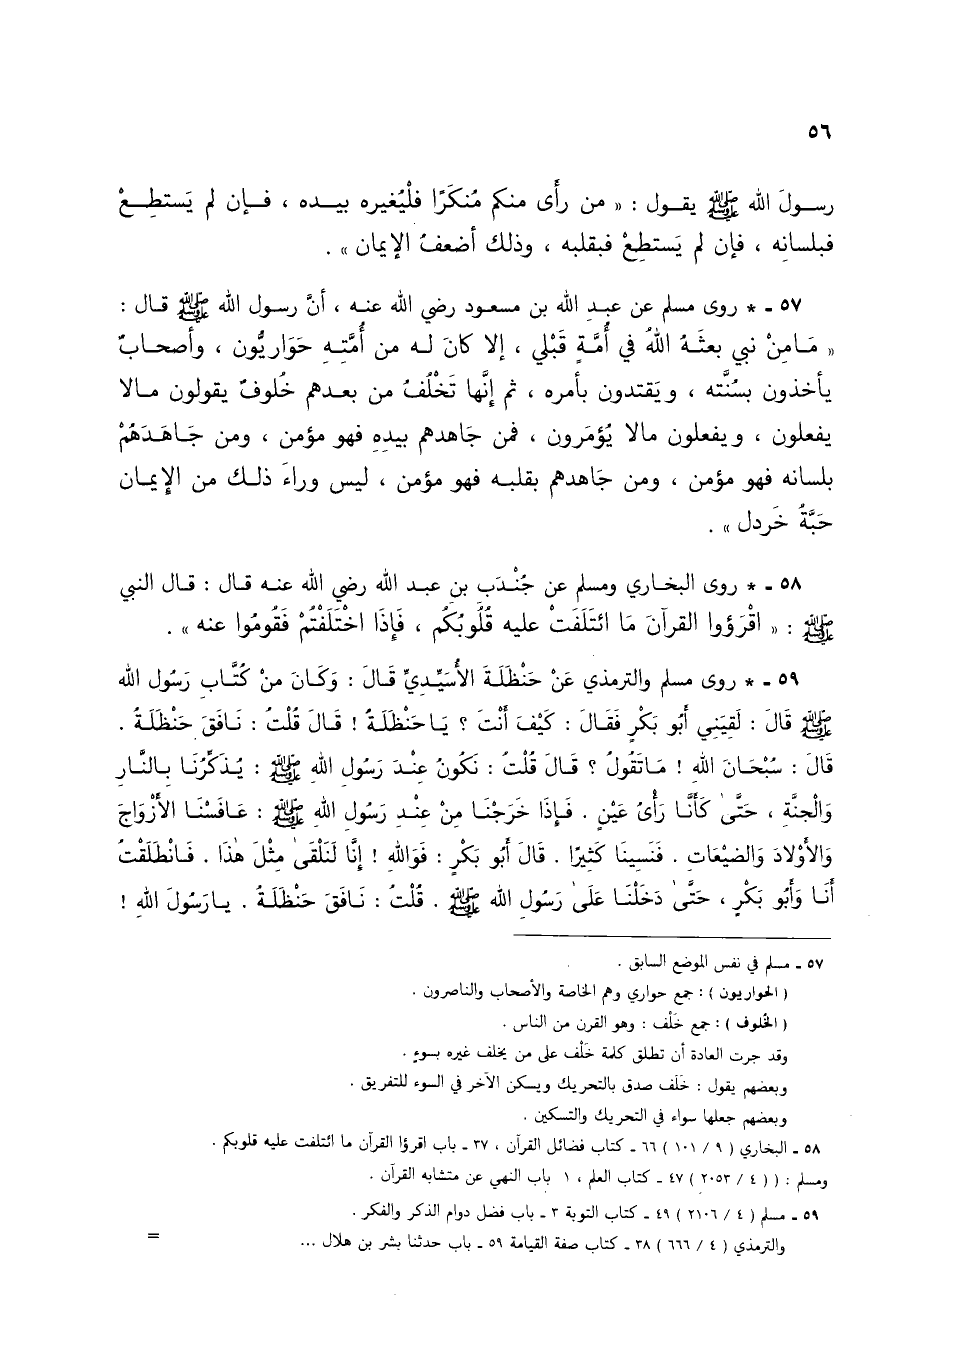 ٥٦
رسـولَ الله ﷺ يقـول : « من رأَى منكم مُنكَرًا فلْيُغيره بيـده ، فـإن لم يَستطِـعْ
فبلسانِه ، فإن لم يَستطِعْ فبقلبه ، وذلك أضعفُ الإيمان » .
٥٧ ـ * روى مسلم عن عبـد الله بن مسعـود رضي الله عنـه ، أنَّ رسـول الله ﷺ قـال :
« مَـامِنْ نبي بعثَـهُ اللهُ في أُمَّةٍ قَبْلي ، إلا كانَ لـه من أُمَّتِـهِ حَوَاريُّون ، وأصحـابٌ
يأخذون بسُنَّته ، ويَقتدون بأمره ، ثم إنَّها تَخْلُفُ من بعـدهم خُلُوفٌ يقولون مـالا
يفعلون ، ويفعلون مالا يُؤمَرون ، فمن جَاهدهم بيدِهِ فهو مؤمن ، ومن جَـاهَـدَهُمْ
بلسانه فهو مؤمن ، ومن جَاهدهم بقلبـه فهو مؤمن ، ليس وراءَ ذلـك من الإيمـان
حَبَّةُ خَردل » .
٥٨ ـ * روى البخـاري ومسلم عن جُنْدَب بن عبـد الله رضي الله عنـه قـال : قـال النبي
ﷺ : « اقْرَؤوا القرآنَ مَا ائتَلَفَتْ عليه قُلُوبُكُم ، فَإِذَا اخْتَلَفْتُمْ فَقُومُوا عنه » .
٥٩ ـ * روى مسلم والترمذي عَنْ حَنْظَلَةَ الأُسَيِّديِّ قَـالَ : وَكَـانَ مِنْ كُتَّابِ رَسُولِ الله
ﷺ قَالَ : لَقِيَنِي أَبُو بَكْرٍ فَقَـالَ : كَيْفَ أَنْتَ ؟ يَـا حَنْظَلَـةُ ! قَـالَ قُلْتُ : نَـافَقَ حَنْظَلَـةُ .
قَالَ : سُبْحَـانَ اللهِ ! مَـاتَقُولُ ؟ قَـالَ قُلْتُ : نَكُونُ عِنْـدَ رَسُولِ اللهِ ﷺ : يُـذَكِّرُنَـا بـالنَّـارِ
وَالْجنَّةِ ، حَتَّىٰ كَأَنَّـا رَأْىُ عَيْنٍ . فَـإِذَا خَرَجْنَـا مِنْ عِنْـدِ رَسُولِ اللهِ ﷺ : عَـافَسْنَـا الأَزْوَاجَ
وَالأَوْلادَ وَالضيْعَاتِ . فَنَسِينَا كَثِيرًا . قَالَ أَبُو بَكْرٍ : فَوَاللهِ ! إِنَّا لَنَلْقَىٰ مِثْلَ هٰذَا . فَـانْطَلَقْتُ
أَنَـا وَأَبُو بَكْرٍ ، حَتَّىٰ دَخَلْنَـا عَلَىٰ رَسُولِ الله ﷺ . قُلْتُ : نَـافَقَ حَنْظَلَـةُ . يـارَسُولَ اللهِ !
٥٧ ـ مسلم في نفس الموضع السابق .
( الحواريون ) : جمع حواري وهم الخاصة والأصحاب والناصرون .
( الخُلوف ) : جمع خَلْف : وهو القرن من الناس .
وقد جرت العادة أن تطلق كلمة خَلْف على من يخلف غيره بسوءٍ .
وبعضهم يقول : خَلَف صدق بالتحريك ويسكن الآخر في السوء للتفريق .
وبعضهم جعلها سواء في التحريك والتسكين .
٥٨ ـ البخاري ( ٩ / ١٠١ ) ٦٦ ـ كتاب فضائل القرآن ، ٣٧ ـ باب اقرؤا القرآن ما ائتلفت عليه قلوبكم .
ومسلم : ( ( ٤ / ٢٠٥٣ ) ٤٧ ـ كتاب العلم ، ١ باب النهي عن متشابه القرآن .
٥٩ ـ مسلم ( ٤ / ٢١٠٦ ) ٤٩ ـ كتاب التوبة ٣ ـ باب فضل دوام الذكر والفكر .
والترمذي ( ٤ / ٦٦٦ ) ٣٨ ـ كتاب صفة القيامة ٥٩ ـ باب حدثنا بشر بن هلال ...
=